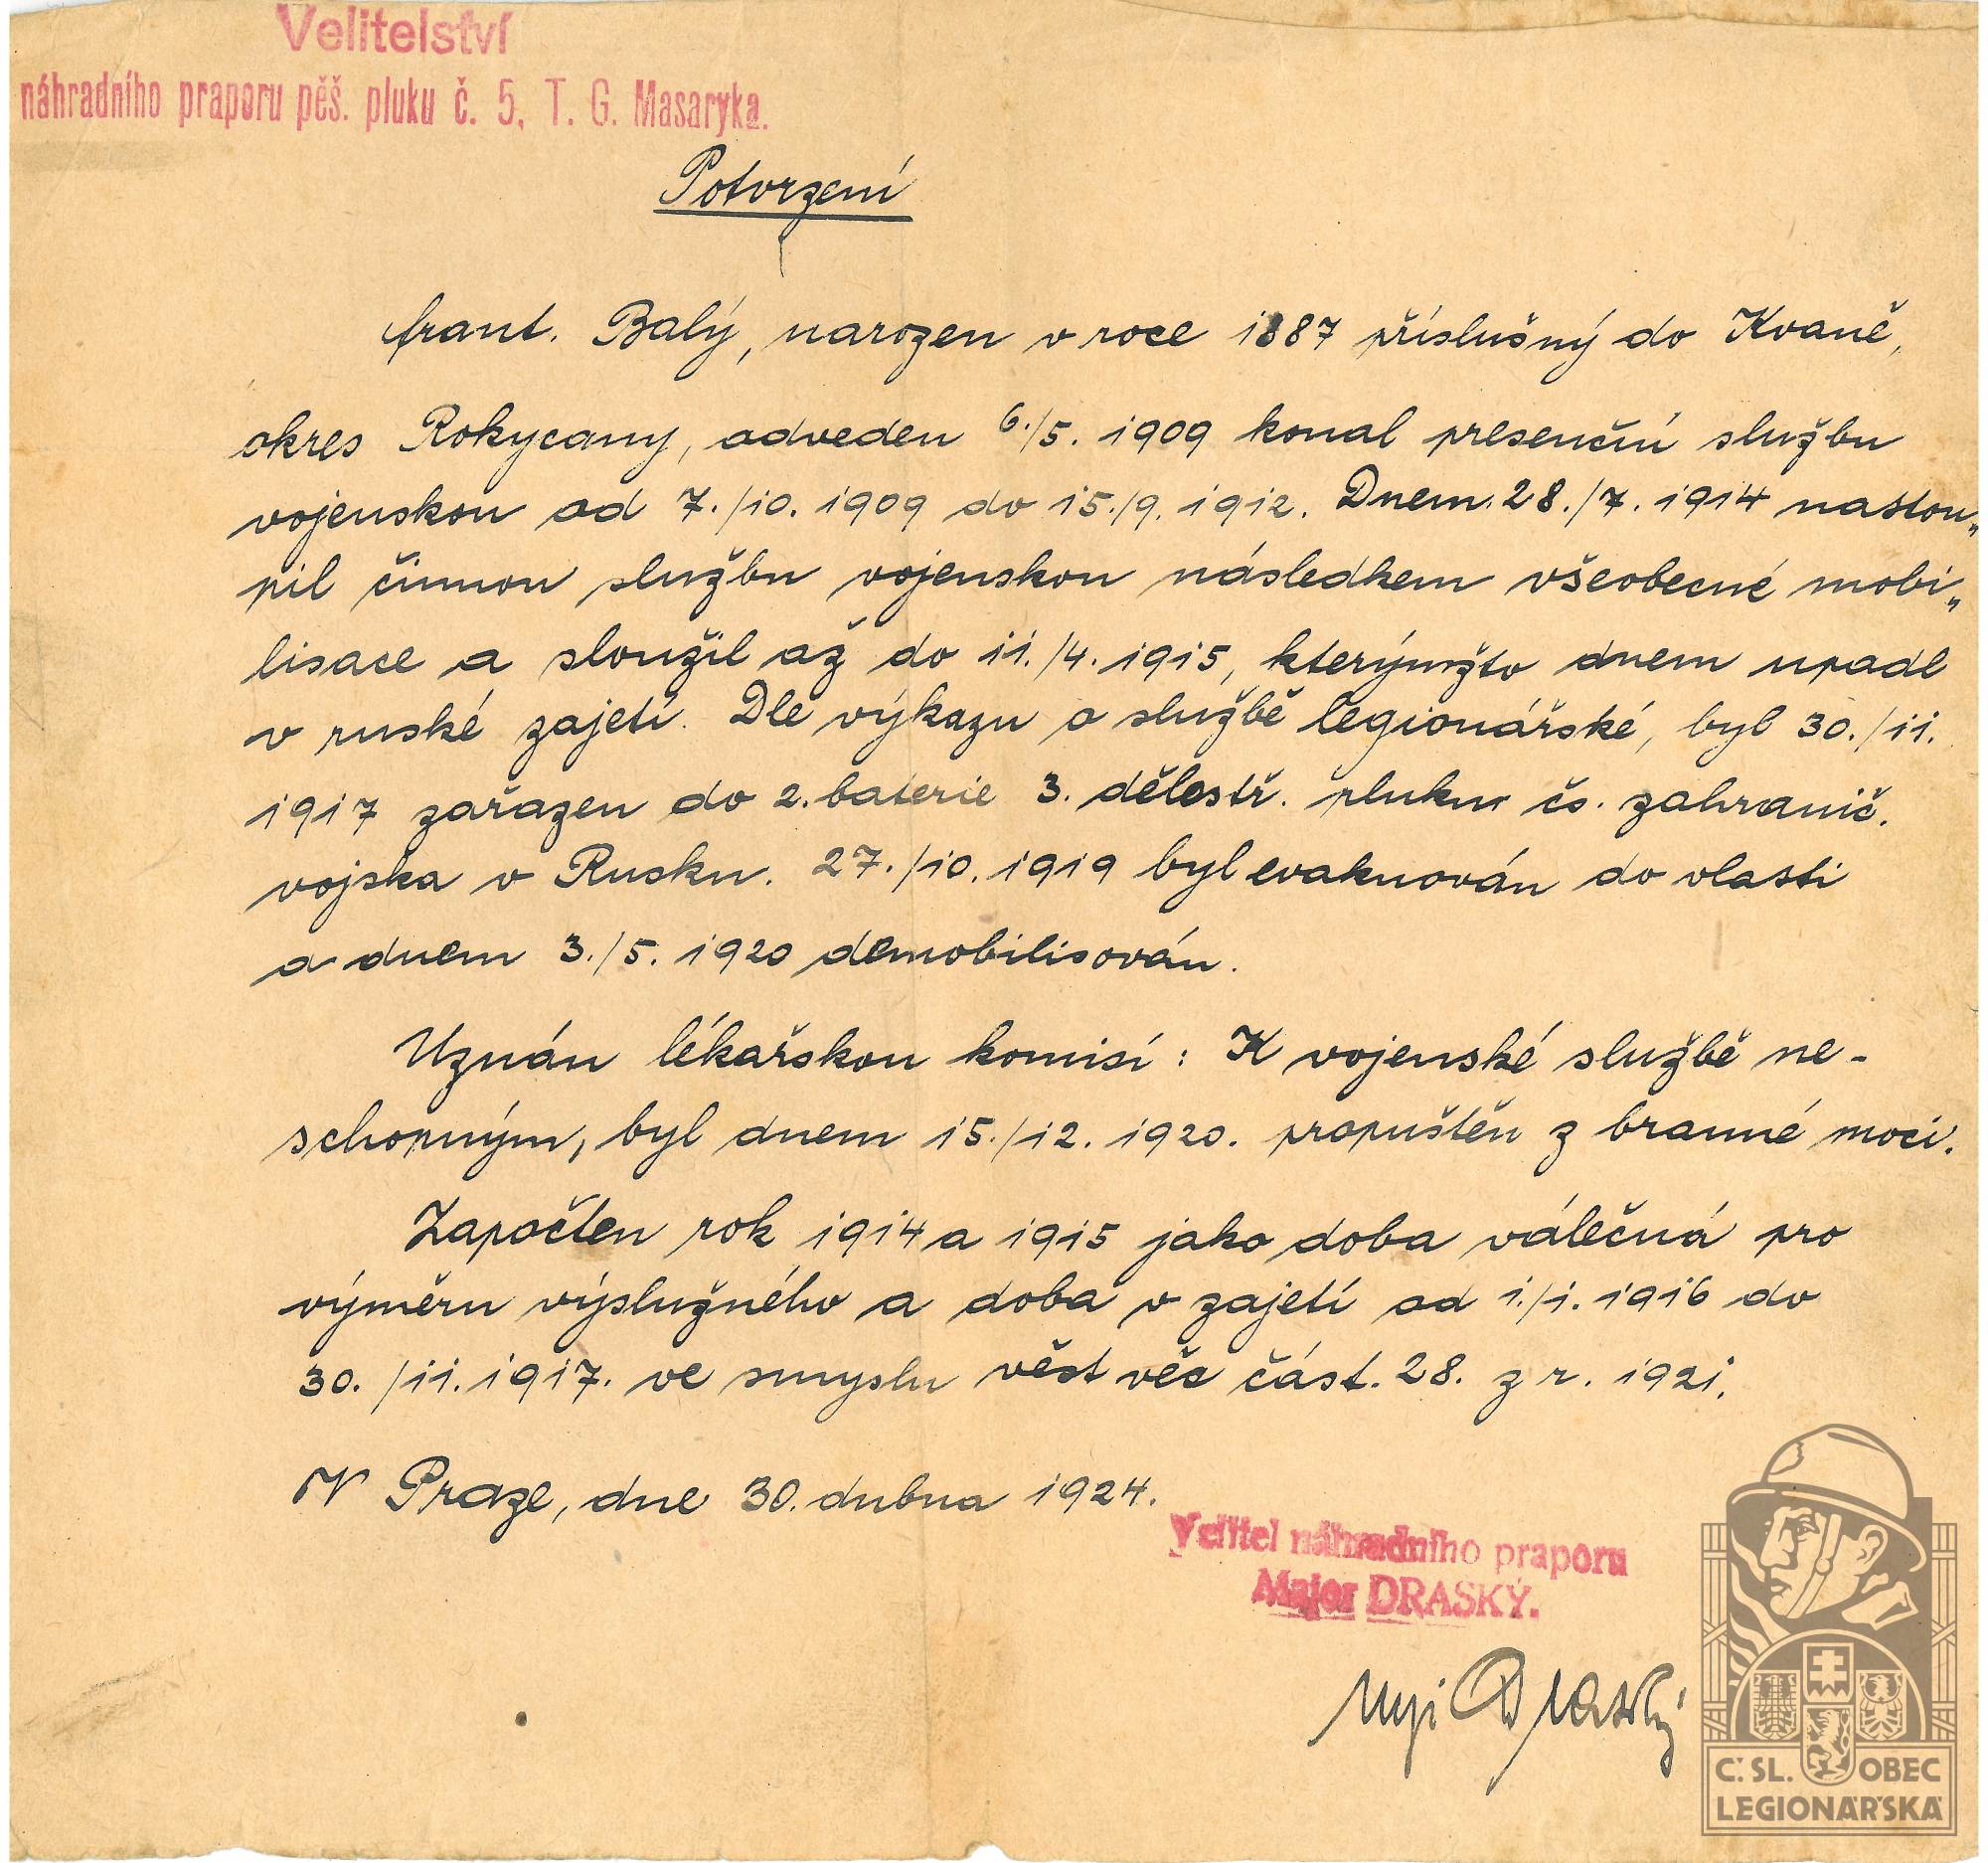 Velitelství
náhradního praporu pěš. pluku č. 5, T. G. Masaryka.
Potvrzení
Frant. Balý, narozen v roce 1887 příslušný do Kvaně,
okres Rokycany, odveden 6./5. 1909 konal presenční službu
vojenskou od 7./10. 1909 do 15./9. 1912. Dnem 28./7. 1914 nastou„
pil činnou službu vojenskou následkem všeobecné mobi„
lisace a sloužil až do 11./4. 1915, kterýmžto dnem upadl
v ruské zajetí. Dle výkazu o službě legionářské, byl 30./11.
1917 zařazen do 2. baterie 3. dělestř. pluku čs. zahranič.
vojska v Rusku. 27./10. 1919 byl evakuován do vlasti
a dnem 3./5. 1920 demobilisován.
Uznán lékařskou komisí: K vojenské službě ne-
schopným, byl dnem 15./12. 1920. propuštěn z branné moci.
Započten rok 1914 a 1915 jako doba válečná pro
výměru výslužného a doba v zajetí od 1./1. 1916 do
30./11. 1917. ve smyslu věst věc část. 28. z r. 1921.
V Praze, dne 30. dubna 1924.
Velitel náhradního praporu
Major DRASKÝ.
mjr Draský
Č. SL. OBEC
LEGIONÁŘSKÁ